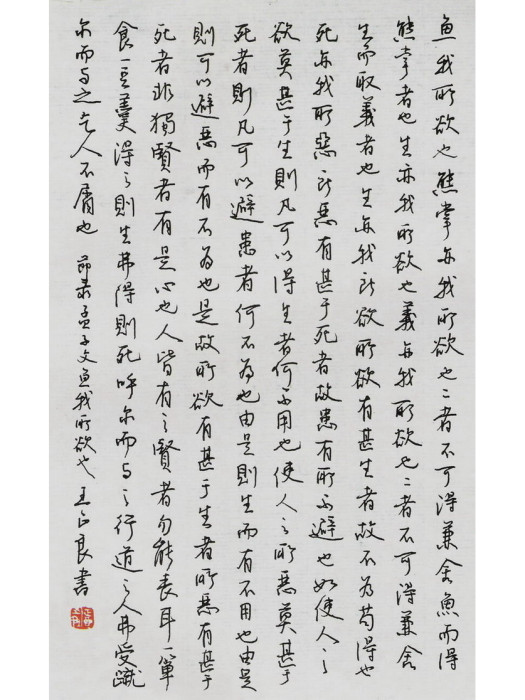 鱼我所欲也熊掌亦我所欲也二者不可得兼舍魚而得
熊掌者也生亦我所欲也義亦我所欲也二者不可得兼舍
生而取義者也生亦我所欲所欲有甚生者故不为苟得也
死亦我所惡所惡有甚于死者故患有所不避也如使人之
欲莫甚于生則凡可以得生者何不用也使人之所惡莫甚于
死者則凡可以避患者何不为也由是則生而有不用也由是
則可以避惡而有不为也是故所欲有甚于生者所惡有甚于
死者非獨賢者有是心也人皆有之賢者勿能丧耳一箪
食一豆羹得之則生弗得則死呼尔而与之行道之人弗受蹴
尔而与之乞人不屑也 节录孟子文鱼我所欲也 王正良書